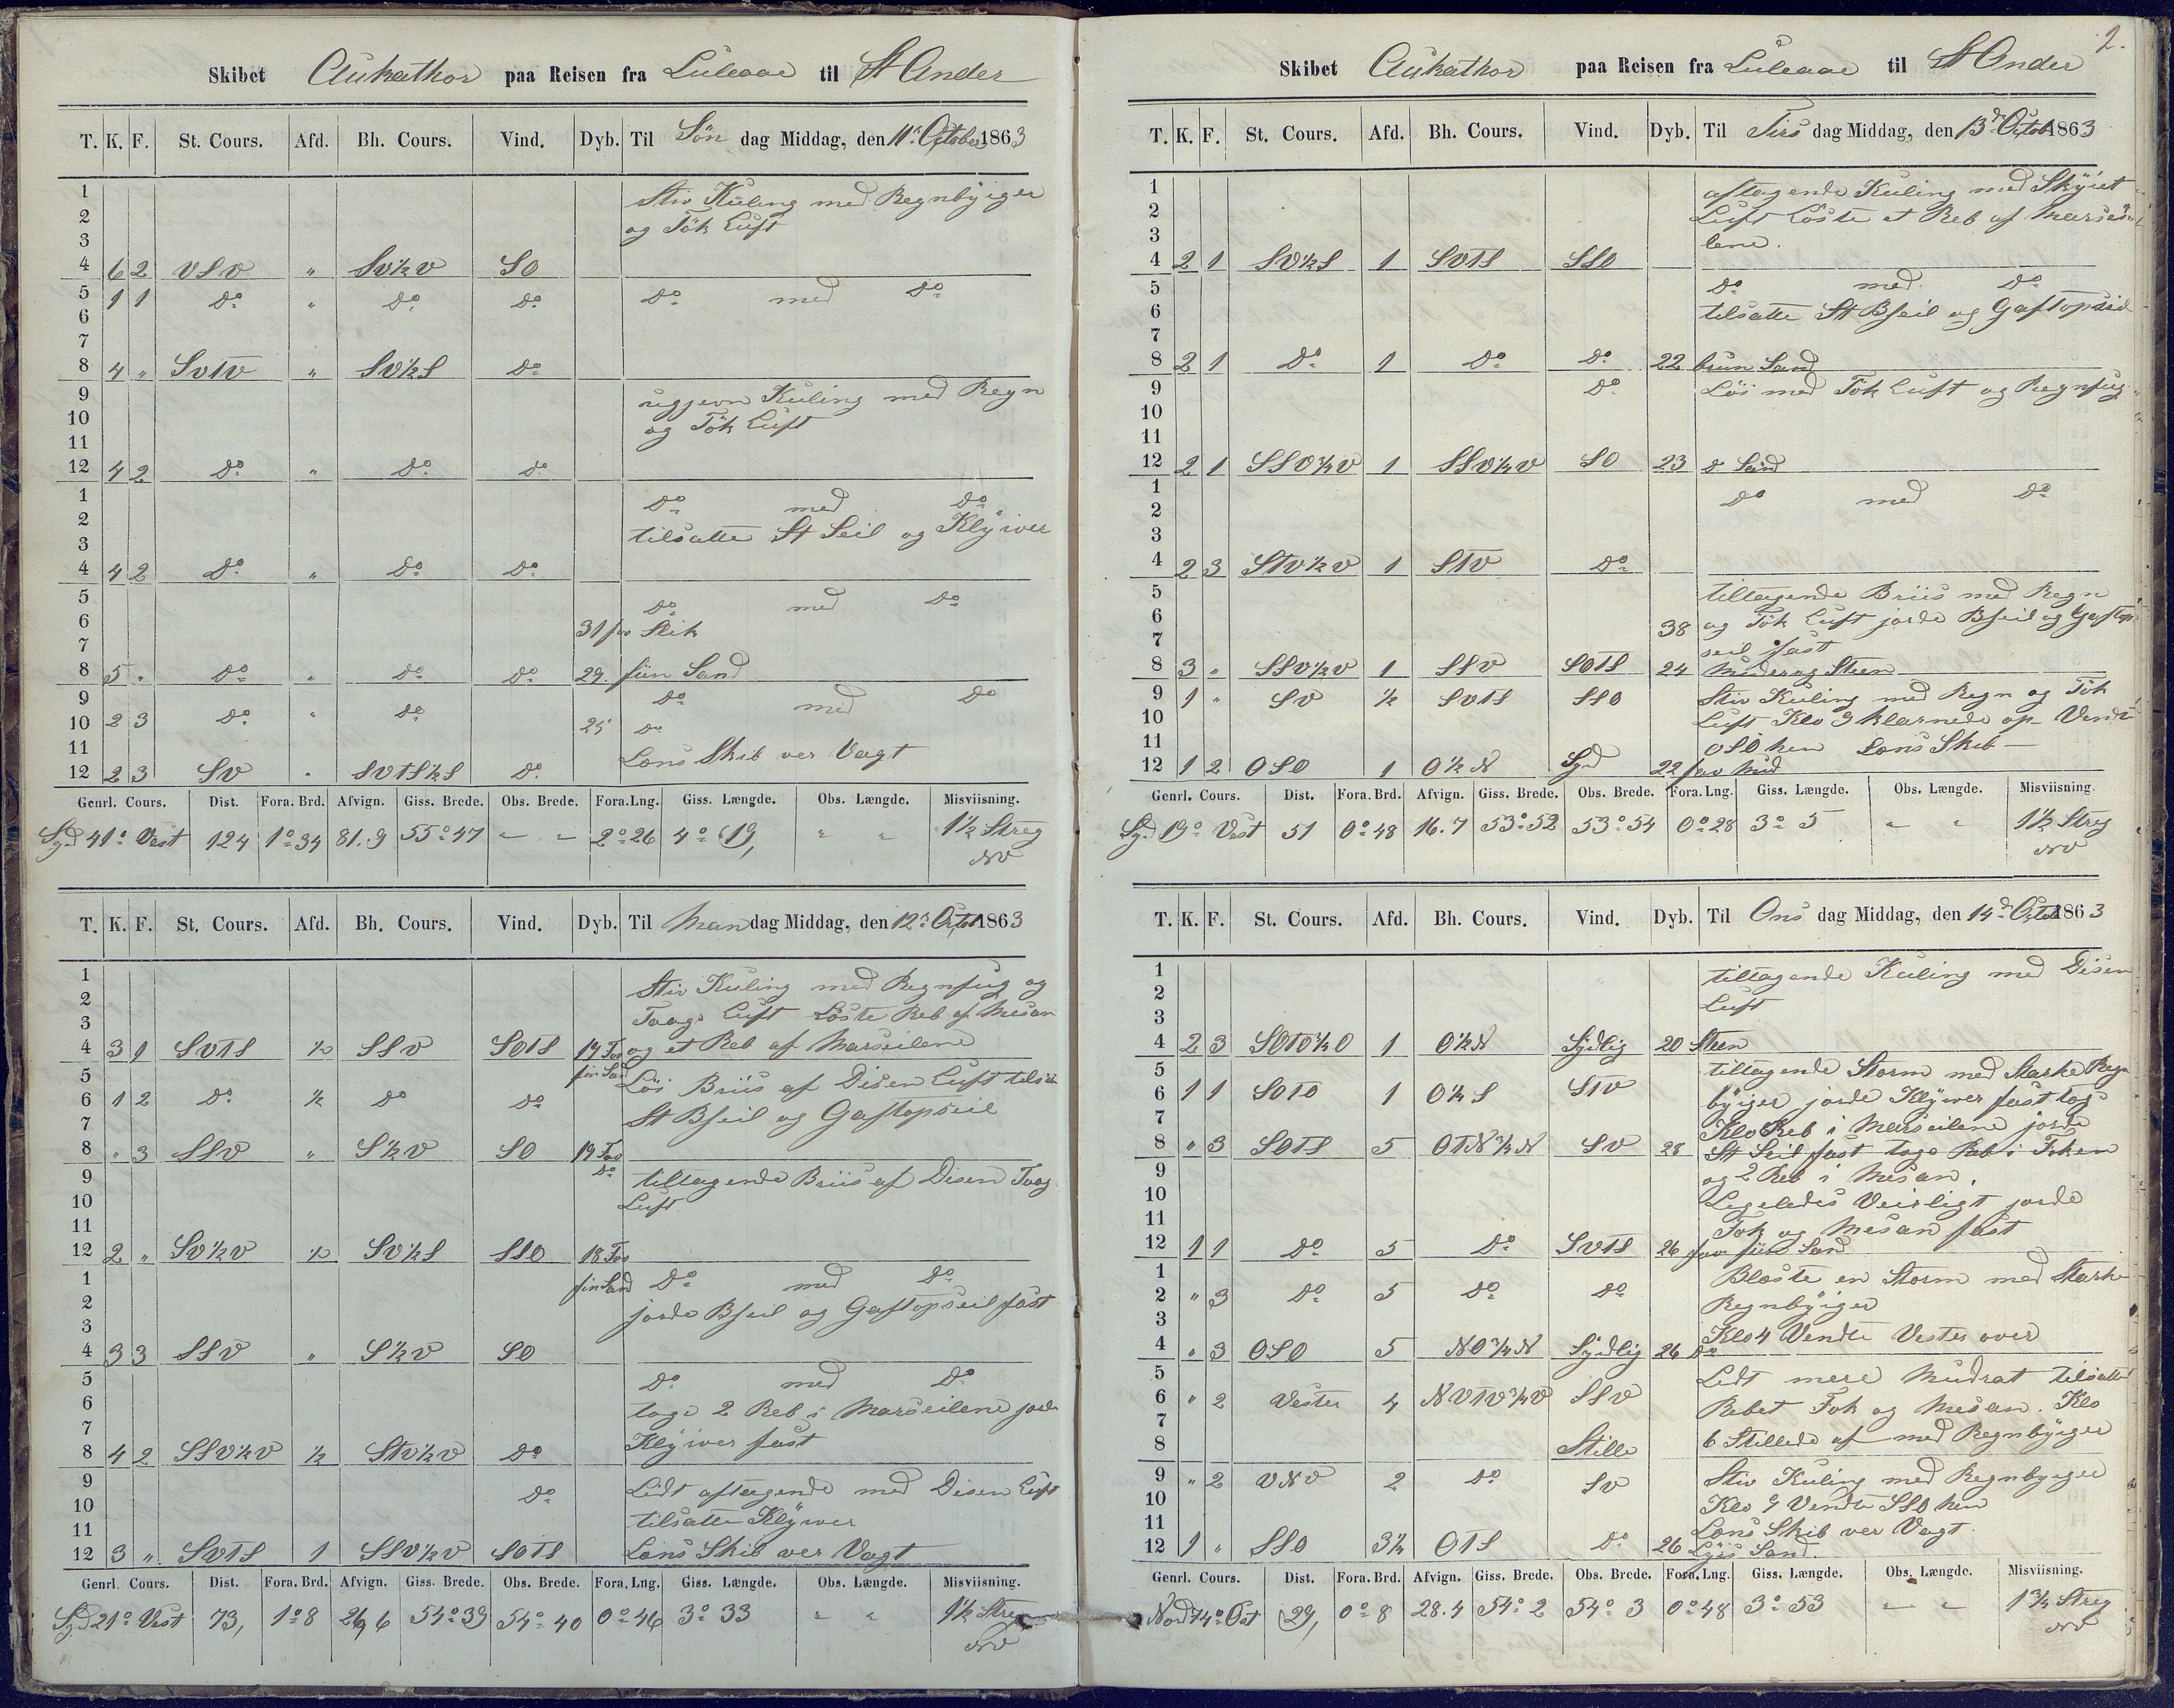 Skibet Aukathor paa Reisen fra Luleaae til St Ander
T. K. F. St. Cours. Afd. Bh. Cours. Vind. Dyb. Til Søn dag Middag, den 11t October 1863
1 Stiv Kuling med Regnbÿiger
2 og Tÿk Luft
3
4 6 2 VSV " SV½V SO
5 1 1 Do " Do Do Do med Do
6
7
8 4 " SVTV " SV½S Do
9 Kuling med Regn
10 og Tÿk Luft
11
12 4 2 Do " Do Do
1 Do med Do
2 tilsatte St Seil og Klÿiver
3
4 4 2 Do " Do Do
5 Do med Do
6 31 fv Slik
7
8 5 " Do " Do Do 29. fiin Sand
9 Do med Do
10 2 3 Do " Do 25 Do
11 Lens Skib ver Vagt
12 2 3 SV " SVTS½S Do
Genrl. Cours. Dist. Fora. Brd. Afvign. Giss. Brede. Obs. Brede. Fora. Lng. Giss. Længde. Obs. Længde. Misviisning.
Syd 41° Vest 124 1°34 81.9 55°47 " " 2°26 4°19, " " 1½ Streg
NV
T. K. F. St. Cours. Afd. Bh. Cours. Vind. Dyb. Til Man dag Middag, den 12t Octob 1863
1 Stiv Kuling med Regnfug og
2 Taage Luft Löste Reb af Mesan
3
4 3 1 SVTS ½ SSV SOTS 19 Fav og et Reb af Marseilene
5 fin Sand Löi Briis af Disen Luft tilsatte
6 1 2 Do ½ Do Do
7 St Bseil og Gaftopseil
8 " 3 SSV " S½V SO 19 Fav
9 Do tiltagende Briis af Disen Taage
10 Luft
11
12 2 " SV½V ½ SV½S SSO 18 Fav
1 fin Sand Do med Do
2 jorde Bseil og Gaftopseil fast
3
4 3 3 SSV " S½V SO
5 Do med Do
6 toge 2 Reb i Marseilene jorde
7 Klÿiver fast
8 4 2 SSV½V ½ STV½V Do
9 Do Lidt aftagende med Disen Luft
10 tilsatte Klÿwer
11
12 3 " SVTS 1 SSV½V SOTS Lens Skib ver Vagt
Genrl. Cours. Dist. Fora. Brd. Afvign. Giss. Brede. Obs. Brede. Fora. Lng. Giss. Længde. Obs. Længde. Misviisning.
Syd 21° Vest 73, 1°8 26,6 54°39 54°40 0°46 3°33 " " 1½ Streg
NV
2.
Skibet Aukathor paa Reisen fra Luleaae til St Ander
T. K. F. St. Cours. Afd. Bh. Cours. Vind. Dyb. Til Tirs dag Middag, den 13d Octob 1863
1 aftagende Kuling med Skÿiet
2 Luft Löste et Reb af Marsei
3 lene.
4 2 1 SV½S 1 SVTS SSO
5 Do med Do
6 tilsatte St Bseil og Gaftopseil
7
8 2 1 Do 1 Do Do 22 bruun Sand
9 Do Löi med Tÿk Luft og Regnfug
10
11
12 2 1 SSV½V 1 SSV½V SO 23 Do Sand
1 Do med Do
2
3
4 2 3 STV½V 1 STV Do
5 tiltagende Briis med Regn
6 38 og Tÿk Luft jorde Bseil og Gaftop
7 seil fast
8 3 " SSV½V 1 SSV SOTS 24 Mudder og Steen
9 1 " SV ½ SVTS SSO Stiv Kuling med Regn og Tÿk
10 Luft Klo 9 klarnede op Vendte
11 OSO hen Lens Skib
12 1 2 OSO 1 O½N Syd 22 fav Mud
Genrl. Cours. Dist. Fora. Brd. Afvign. Giss. Brede. Obs. Brede. Fora. Lng. Giss. Længde. Obs. Længde. Misviisning.
Syd 19° Vest 51 0°48 16.7 53°52 53°54 0°28 3°5 " " 1½ Streg
NV
T. K. F. St. Cours. Afd. Bh. Cours. Vind. Dyb. Til Ons dag Middag, den 14d Octob 1863
1 tiltagende Kuling med Disen
2 Luft
3
4 2 3 SOTO½O 1 O½N Sÿdlig 20 Steen
5 tiltagende Storm med Starke Regn
6 1 1 SOTO 1 O½S STV bÿiger jorde Klÿwer fast tog
7 Klo Reb i Marseilene jorde
8 " 3 SOTS 5 OTN¾N SV 28 St Seil fast toge Reb i Foken
9 og 2 Reb i Mesan.
10 Ligeledes Veirligt jorde
11 Fok og Mesan fast
12 1 1 Do 5 Do SVTS 26 fav fiin Sand
1 Blæste en Storm med Starke
2 " 3 Do 5 Do Do Regnbÿiger
3
4 " 3 OSO 5 NO¾N Sÿdlig 26 Do Klo 4 Vendte Vester over
5 Lidt mere Mudrat tilsatte
6 " 2 Vester 4 NVTV¾V SSV Rebet Fok og Mesan. Klo
7
8 Stille 6 Stillede af med Regnbÿiger
9 " 2 VNV 2 Do SV Stiv Kuling med Regnbÿiger
10 Klo 9 Vendte SSO hen
11 Lens Skib ver Vagt
12 1 " SSO 3½ OTS Do 26 Lÿs Sand.
Genrl. Cours. Dist. Fora. Brd. Afvign. Giss. Brede. Obs. Brede. Fora. Lng. Giss. Længde. Obs. Længde. Misviisning.
Nord 74° Ost 29, 0°8 28.4 54°2 54°3 0°48 3°53 " " 1¾ Streg
NV